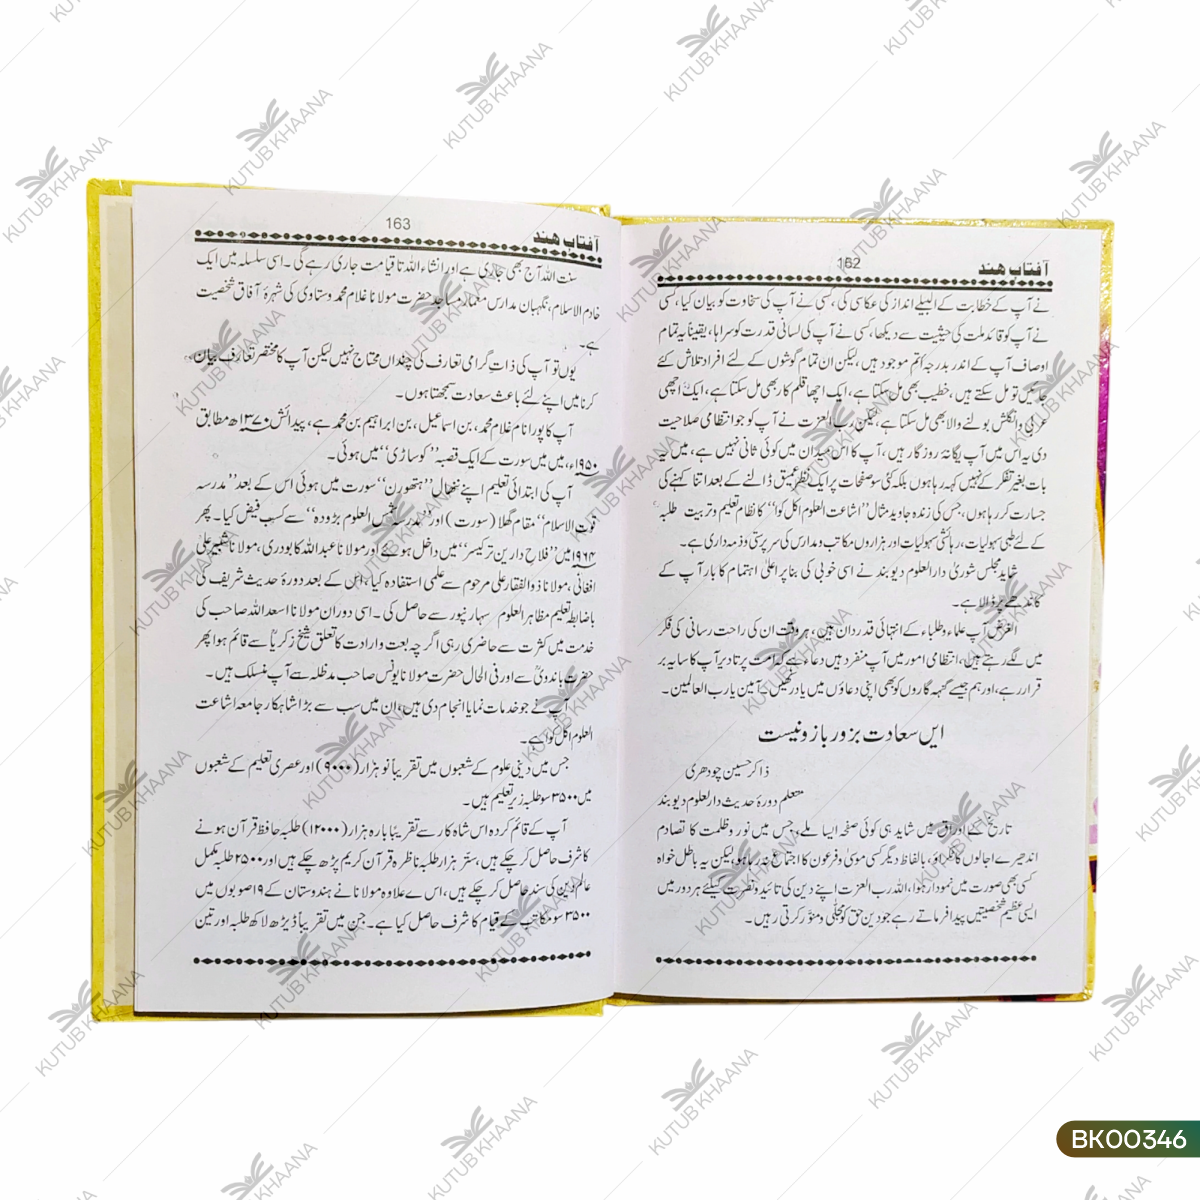 آفتاب ھند
162
نے آپ کے خطابت کے البیلے انداز کی عکاسی کی، کسی نے آپ کی سخاوت کو بیان کیا، کسی
نے آپ کو قائد ملت کی حیثیت سے دیکھا، کسی نے آپ کی لسانی قدرت کو سراہا، یقیناً یہ تمام
اوصاف آپ کے اندر بدرجہ اتم موجود ہیں، لیکن ان تمام گوشوں کے لئے افراد تلاش کئے
جائیں تو مل سکتے ہیں، خطیب بھی مل سکتا ہے، ایک اچھا قلم کار بھی مل سکتا ہے، ایک اچھی
عربی وانگلش بولنے والا بھی مل سکتا ہے، لیکن رب العزت نے آپ کو جو انتظامی صلاحیت
دی ہے اس میں آپ یگانۂ روزگار ہیں، آپ کا اس میدان میں کوئی ثانی نہیں ہے، میں یہ
بات بغیر تفکر کے نہیں کہہ رہا ہوں بلکہ کئی سو صفحات پر ایک نظر عمیق ڈالنے کے بعد اتنا کہنے کی
جسارت کر رہا ہوں، جس کی زندہ جاوید مثال "اشاعت العلوم اکل کوا" کا نظام تعلیم وتربیت طلبہ
کے لئے طبی سہولیات، رہائشی سہولیات اور ہزاروں مکاتب ومدارس کی سرپرستی وذمہ داری ہے۔
شاید مجلس شوریٰ دارالعلوم دیوبند نے اسی خوبی کی بنا پر اعلیٰ اہتمام کا بار آپ کے
کاندھے پر ڈالا ہے۔
الغرض آپ علماء وطلباء کے انتہائی قدردان ہیں، ہر وقت ان کی راحت رسانی کی فکر
میں لگے رہتے ہیں، انتظامی امور میں آپ منفرد ہیں دعاء ہے کہ امت پر تا دیر آپ کا سایہ بر
قرار رہے، اور ہم جیسے گنہہ گاروں کو بھی اپنی دعاؤں میں یاد رکھیں، آمین یارب العالمین۔
ایں سعادت بزور بازو نیست
ذاکر حسین چودھری
متعلم دورۂ حدیث دارالعلوم دیوبند
تاریخ کے اوراق میں شاید ہی کوئی صفحہ ایسا ملے، جس میں نور وظلمت کا تصادم
اندھیرے اجالوں کا ٹکراؤ، بالفاظ دیگر کسی موسیٰ وفرعون کا اجتماع نہ رہا ہو، لیکن یہ باطل خواہ
کسی بھی صورت میں نمودار ہوا، اللہ رب العزت اپنے دین کی تائید ونصرت کیلئے ہر دور میں
ایسی عظیم شخصیتیں پیدا فرماتے رہے جو دین حق کو مجلّٰی ومنور کرتی رہیں۔
آفتاب ھند
163
سنت اللہ آج بھی جاری ہے اور انشاء اللہ تا قیامت جاری رہے گی۔ اسی سلسلہ میں ایک
خادم الاسلام، نگہبان مدارس معمار مساجد حضرت مولانا غلام محمد وستانوی کی شہرۂ آفاق شخصیت
ہے۔
یوں تو آپ کی ذات گرامی تعارف کی چنداں محتاج نہیں لیکن آپ کا مختصر تعارف بیان
کرنا میں اپنے لئے باعث سعادت سمجھتا ہوں۔
آپ کا پورا نام غلام محمد، بن اسماعیل، بن ابراہیم بن محمد ہے، پیدائش ۱۳۷۰ھ مطابق
۱۹۵۰ء، میں میں سورت کے ایک قصبہ "کوساڑی" میں ہوئی۔
آپ کی ابتدائی تعلیم اپنے ننھال "ہتھورن" سورت میں ہوئی اس کے بعد "مدرسہ
قوت الاسلام" مقام گھلا (سورت) اور "مدرسہ شمس العلوم بڑودہ" سے کسب فیض کیا۔ پھر
۱۹۶۴ میں "فلاح دارین ترکیسر" میں داخل ہوئے اور مولانا عبداللہ کاپودری، مولانا شبیر علی
افغانی، مولانا ذوالفقار علی مرحوم سے علمی استفادہ کیا، اس کے بعد دورۂ حدیث شریف کی
باضابطہ تعلیم مظاہر العلوم سہارنپور سے حاصل کی۔ اسی دوران مولانا اسعد اللہ صاحب کی
خدمت میں کثرت سے حاضری رہی اگرچہ بیعت وارادت کا تعلق شیخ زکریاؒ سے قائم ہوا پھر
حضرت باندویؒ سے اور فی الحال حضرت مولانا یونس صاحب مدظلہ سے آپ منسلک ہیں۔
آپ نے جو خدمات نمایا انجام دی ہیں، ان میں سب سے بڑا شاہکار جامعہ اشاعت
العلوم اکل کوا ہے۔
جس میں دینی علوم کے شعبوں میں تقریباً نو ہزار (۹۰۰۰) اور عصری تعلیم کے شعبوں
میں ۳۵۰۰ سو طلبہ زیر تعلیم ہیں۔
آپ کے قائم کردہ اس شاہ کار سے تقریبا بارہ ہزار (۱۲۰۰۰) طلبہ حافظ قرآن ہونے
کا شرف حاصل کر چکے ہیں، ستر ہزار طلبہ ناظرہ قرآن کریم پڑھ چکے ہیں اور ۲۵۰۰ طلبہ مکمل
عالم دین کی سند حاصل کر چکے ہیں، اس ے علاوہ مولانا نے ہندوستان کے ۱۹ صوبوں میں
۳۵۰۰ سو مکاتب کے قیام کا شرف حاصل کیا ہے۔ جن میں تقریباً ڈیڑھ لاکھ طلبہ اور تین
KUTUB KHAANA
BK00346